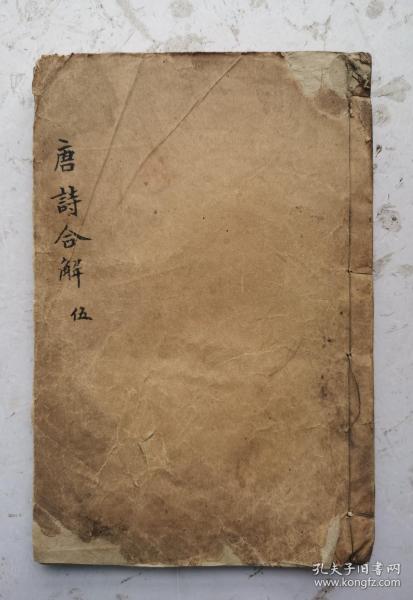 唐詩合解
伍
孔夫子旧书网
www.kongfz.com